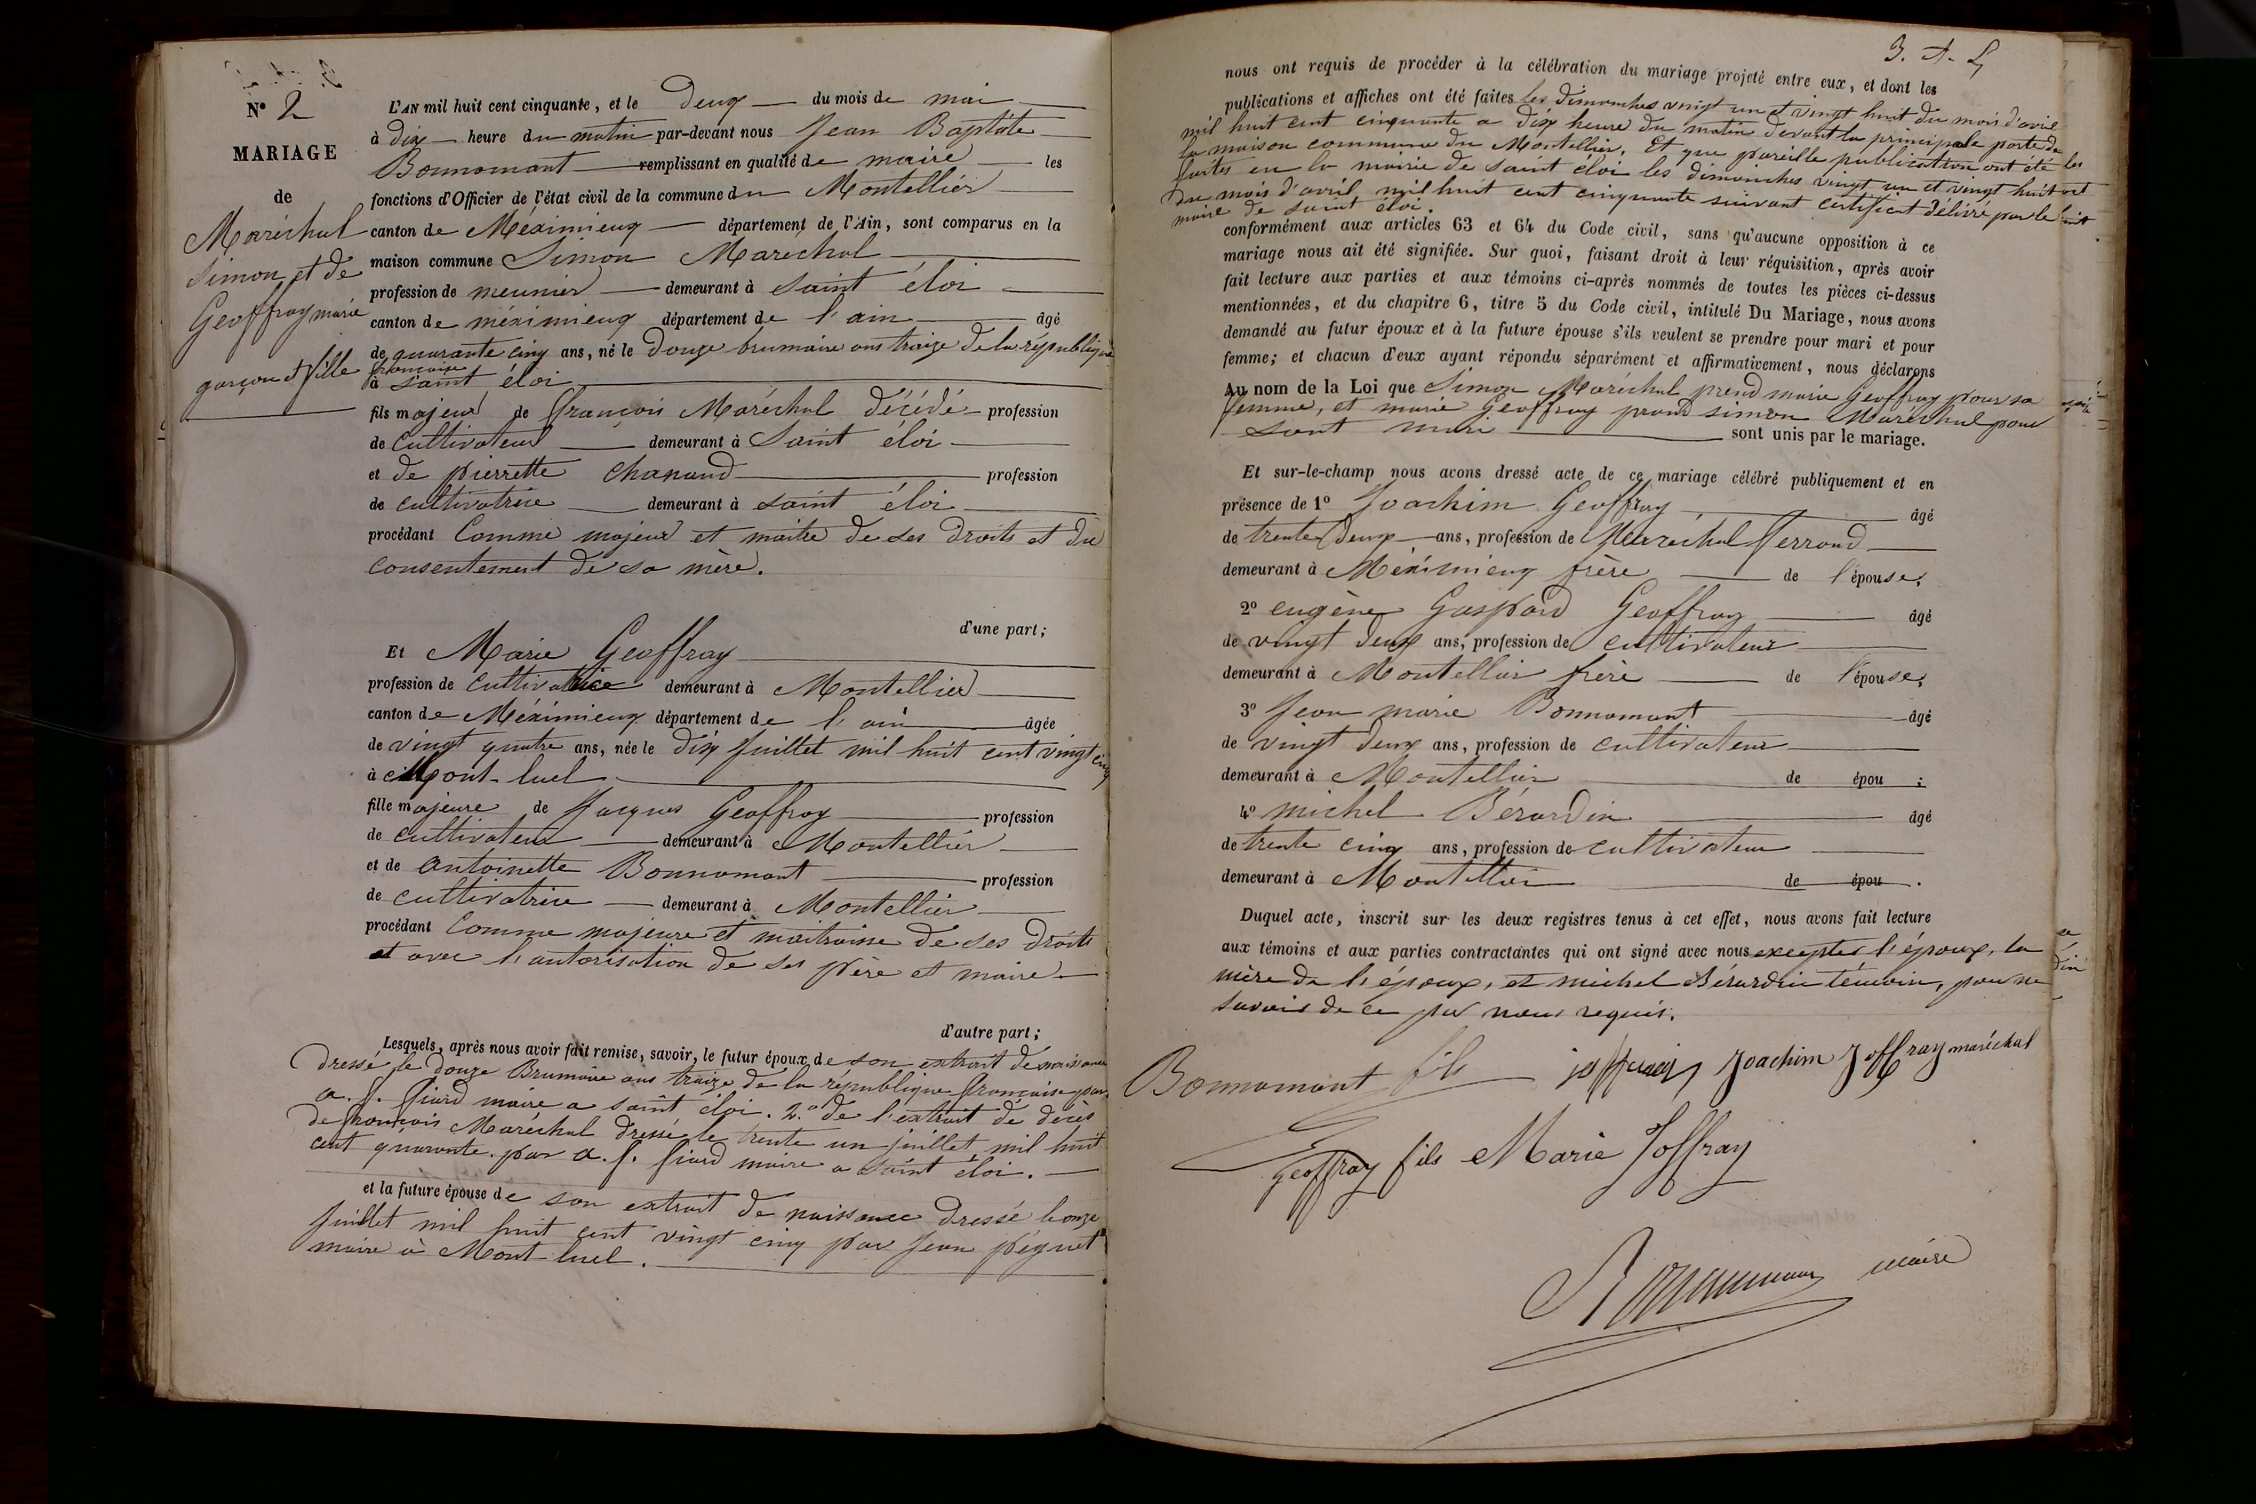 N° 2
MARIAGE
de
Maréchal
Simon et de
Geoffray marie
garçon et fille
L'AN mil huit cent cinquante, et le Deux du mois de mai
à dix heure du matin par-devant nous Jean Baptiste
Bonnomant remplissant en qualité de maire les
fonctions d'Officier de l'état civil de la commune du Montellier
canton de Méximieux département de l'Ain, sont comparus en la
maison commune Simon Maréchal
profession de meunier demeurant à Saint éloi
canton de méximieux département de l'ain âgé
de quarante cinq ans, né le Douze brumaire ans traize de la république
françaisse
à Saint éloi
fils majeur de François Maréchal décédé profession
de Cultivateur demeurant à Saint éloi
et de pierrette Chanaud profession
de cultivatrice demeurant à saint éloi
procédant Comme majeur et maitre de ses droits et du
consentement de sa mère.
d'une part;
Et Marie Geoffray
profession de cultivatrice demeurant à Montellier
canton de Méximieux département de l'ain âgée
de vingt quatre ans, née le Dix Juillet mil huit cent vingt cinq
à Mont-luel
fille majeure de Jacques Geoffray profession
de cultivateur demeurant à Montellier
et de antoinette Bonnomant profession
de cultivatrice demeurant à Montellier
procédant Comme majeure et maitraisse de ses droits
et avec l'autorisation de ses père et maire
d'autre part;
Lesquels, après nous avoir fait remise, savoir, le futur époux, de son extrait de naissance
dressé le douze Brumaire ans traize de la république française par
a. f. fiard maire a saint éloi. 2.° de l'extrait de décès
de françois Maréchal dressé le trente un juillet mil huit
cent quarante par a. f. fiard maire a saint éloi.
et la future épouse de son extrait de naissance dressé le onze
Juillet mil huit cent vingt cinq par Jean péguet
maire à Mont-luel.
nous ont requis de procéder à la célébration du mariage projeté entre eux, et dont les
publications et affiches ont été faites les dimanches vingt un et vingt huit du mois d'avril
mil huit cent cinquante a dix heure du matin devant la principale porte de
la maison commune du Montellier. Et que pareille publication ont été
faites en la mairie de saint éloi les dimanches vingt un et vingt huit
du mois d'avril mil huit cent cinquante suivant certificat délivré par le
maire de saint éloi.
conformément aux articles 63 et 64 du Code civil, sans qu'aucune opposition à ce
mariage nous ait été signifiée. Sur quoi, faisant droit à leur réquisition, après avoir
fait lecture aux parties et aux témoins ci-après nommés de toutes les pièces ci-dessus
mentionnées, et du chapitre 6, titre 5 du Code civil, intitulé Du Mariage, nous avons
demandé au futur époux et à la future épouse s'ils veulent se prendre pour mari et pour
femme; et chacun d'eux ayant répondu séparément et affirmativement, nous déclarons
Au nom de la Loi que Simon Maréchal prend marie Geoffray pour sa
femme, et marie Geoffray prend simon Maréchal pour
sont mari sont unis par le mariage.
Et sur-le-champ nous avons dressé acte de ce mariage célébré publiquement et en
présence de 1° Joachim Geoffray âgé
de trente Deux ans, profession de Maréchal ferrand
demeurant à Méximieux frère de l'épouse;
2° eugène Gaspard Geoffray âgé
de vingt deux ans, profession de cultivateur
demeurant à Montellier frère de l'épouse;
3° Jean marie Bonnomant âgé
de vingt deux ans, profession de cultivateur
demeurant à Montellier de épou ;
4° michel Bérardin âgé
de trente cinq ans, profession de cultivateur
demeurant à Montellier de épou .
Duquel acte, inscrit sur les deux registres tenus à cet effet, nous avons fait lecture
aux témoins et aux parties contractantes qui ont signé avec nous exceptés l'époux, la
mère de l'époux, et michel Bérardin témoin, pour ne
savoir de ce par nous requis.
Bonnomant fils Joachim Joffray maréchal
Geoffray fils Marie Joffray
Bonnomant maire